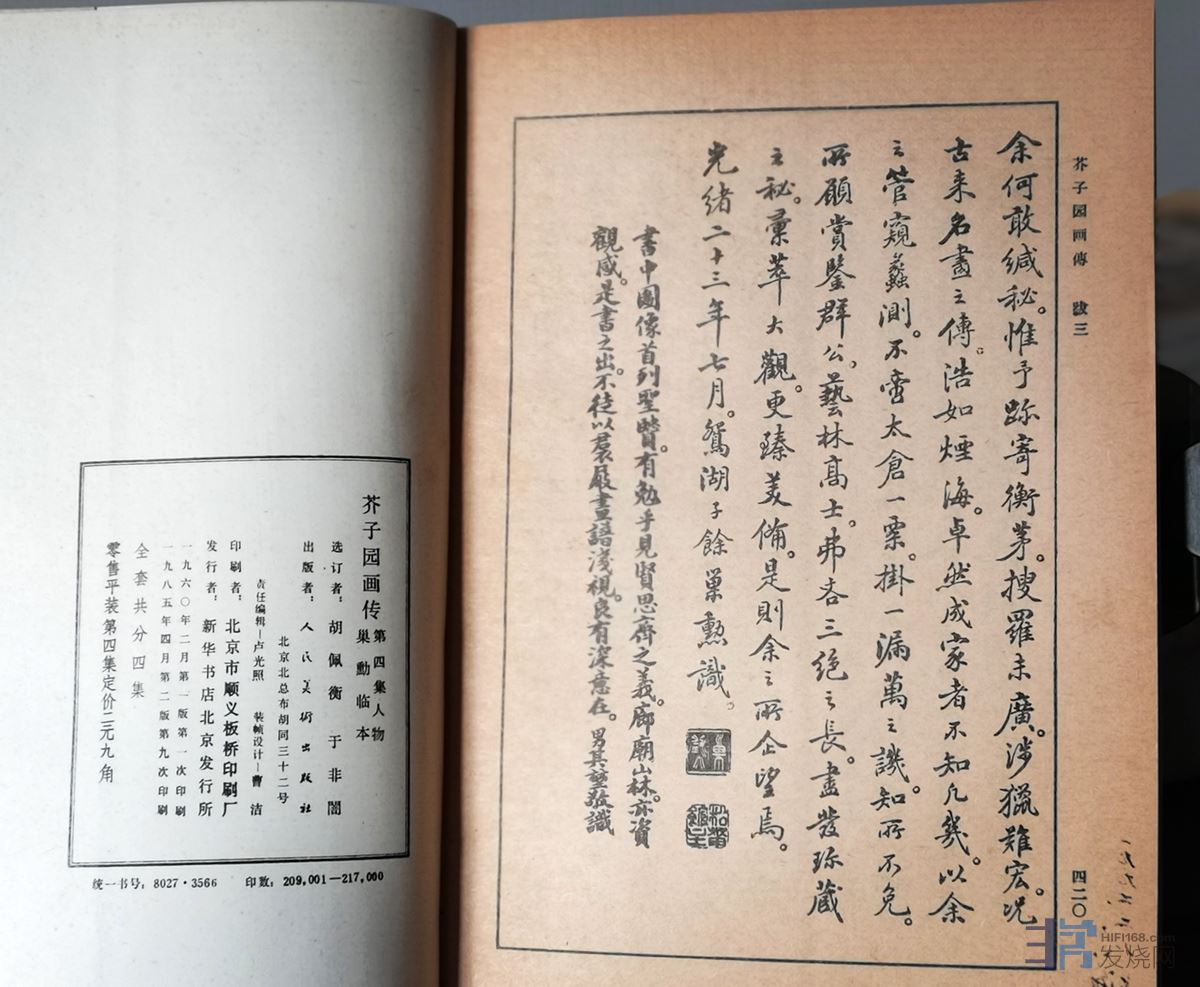 芥子园画传 第四集人物
巢勳临本
选订者：胡佩衡 于非闇
出版者：人民美術出版社
北京北总布胡同三十二号
责任编辑—卢光照 装帧设计—曹洁
印刷者：北京市顺义板桥印刷厂
发行者：新华书店北京发行所
一九六〇年二月第一版第一次印刷
一九八五年四月第二版第九次印刷
全套共分四集
零售平装第四集定价二元九角
统一书号：8027·3566 印数：209,001—217,000
芥子园画傳 跋三
四二〇
余何敢緘秘。惟予跡寄衡茅。搜羅未廣。涉獵難宏。况
古来名畫之傳。浩如煙海。卓然成家者不知凡幾。以余
之管窺蠡測。不啻太倉一粟。掛一漏萬之譏。知所不免。
所願賞鑒群公。藝林高士。弗吝三绝之長。盡發珎藏
之秘。彙萃大觀。更臻美俻。是則余之所企望焉。
光緒二十三年七月。鴛湖子餘巢勲識。
書中圖像首列聖賢。有勉乎見賢思齊之義。廊廟山林。亦資
觀感。是書之出。不徒以裙屐畫譜淺視。良有深意在。男其壄敬識
HIFI168.com
发烧网